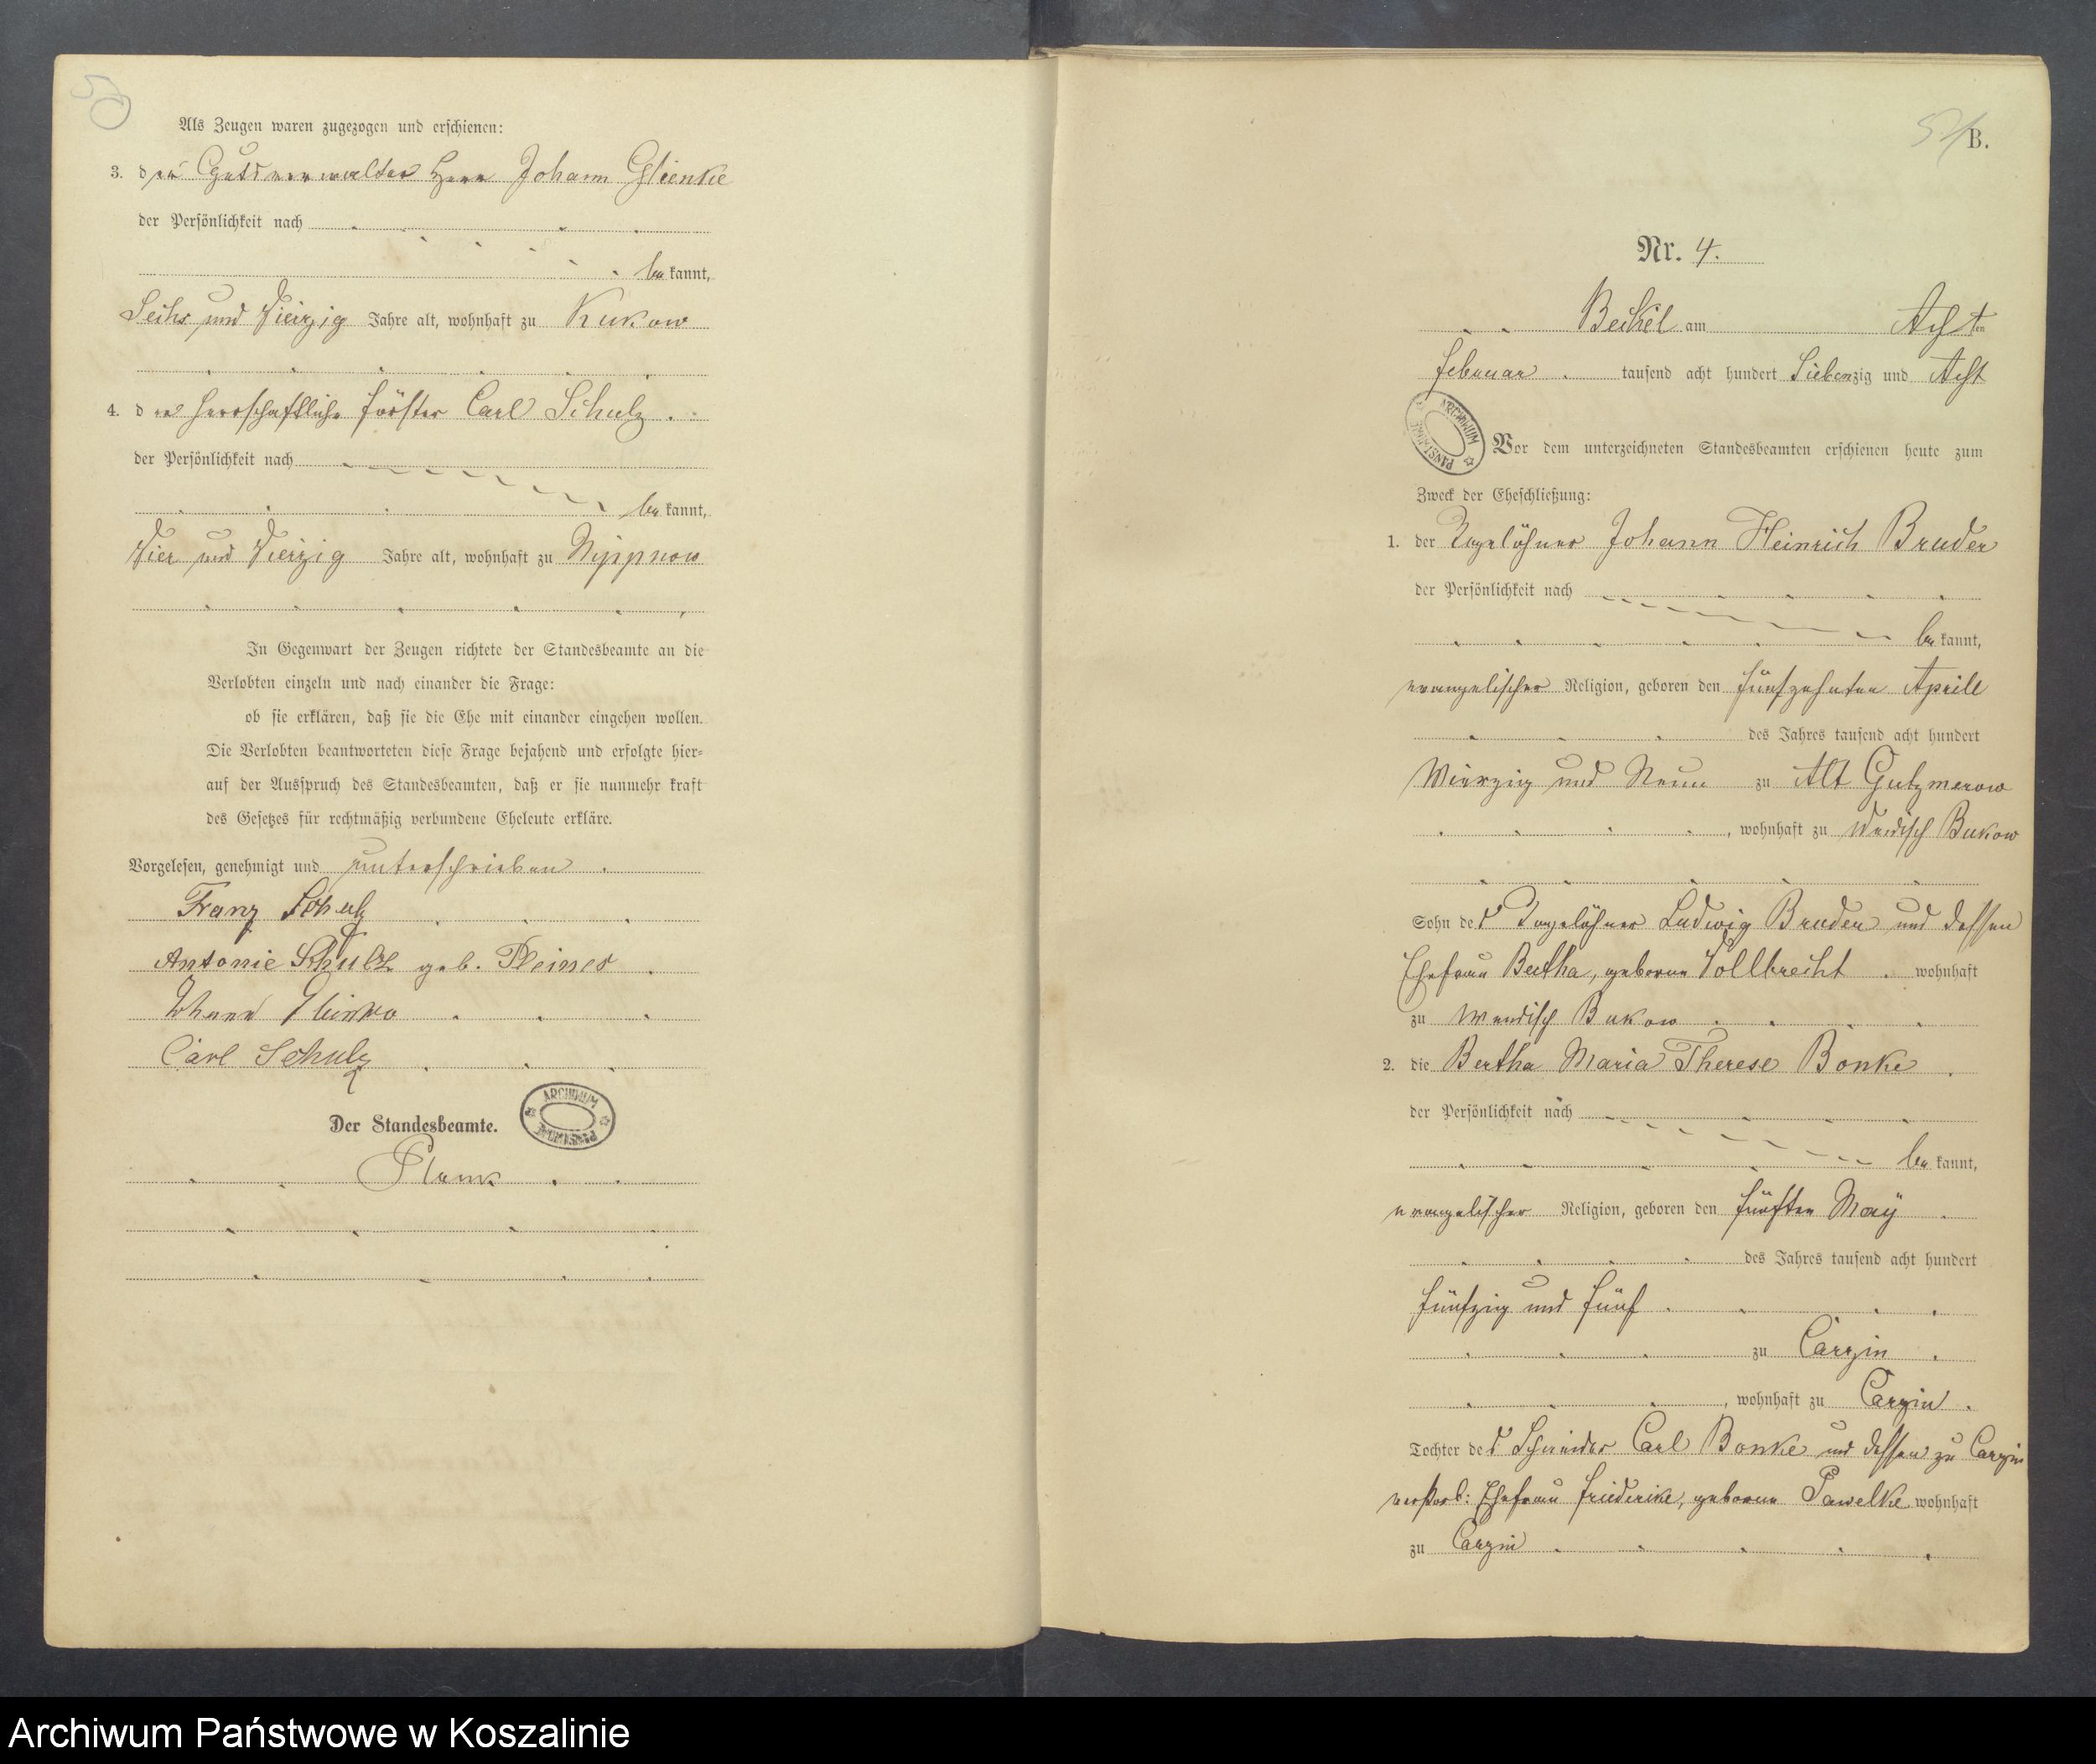 50
Als Zeugen waren zugezogen und erschienen:
3. der Gutsverwalter Herr Johann Glienke
der Persönlichkeit nach
bekannt,
Sechs und Vierzig Jahre alt, wohnhaft zu Kukow
4. der herrschaftliche Förster Carl Schulz.
der Persönlichkeit nach
bekannt,
Vier und Vierzig Jahre alt, wohnhaft zu Nippnow
In Gegenwart der Zeugen richtete der Standesbeamte an die
Verlobten einzeln und nach einander die Frage:
ob sie erklären, daß sie die Ehe mit einander eingehen wollen.
Die Verlobten beantworteten diese Frage bejahend und erfolgte hier-
auf der Ausspruch des Standesbeamten, daß er sie nunmehr kraft
des Gesetzes für rechtmäßig verbundene Eheleute erkläre.
Vorgelesen, genehmigt und unterschrieben.
Franz Schulz
Antonie Schulz geb.
Johann Glienke
Carl Schulz
Der Standesbeamte.
ARCHIWUM PAŃSTWOWE
51
B.
Nr. 4.
Beckel am Achten
Februar tausend acht hundert Siebenzig und Acht
ARCHIWUM PAŃSTWOWE
Vor dem unterzeichneten Standesbeamten erschienen heute zum
Zweck der Eheschließung:
1. der Tagelöhner Johann Heinrich Bruder
der Persönlichkeit nach
bekannt,
evangelischer Religion, geboren den fünfzehnten Aprill
des Jahres tausend acht hundert
Vierzig und Neun zu Alt Gutzmerow
, wohnhaft zu Wendisch Bukow
Sohn des Tagelöhner Ludwig Bruder und dessen
Ehefrau Bertha, geborene Vollbrecht. wohnhaft
zu Wendisch Bukow
2. die Bertha Maria Therese Bonke.
der Persönlichkeit nach
bekannt,
evangelischer Religion, geboren den fünften May
des Jahres tausend acht hundert
fünfzig und fünf
zu Carzin.
, wohnhaft zu Carzin.
Tochter des Schneider Carl Bonke und dessen zu Carzin
verstorb: Ehefrau Friederike, geborene Pawelke wohnhaft
zu Carzin
Archiwum Państwowe w Koszalinie